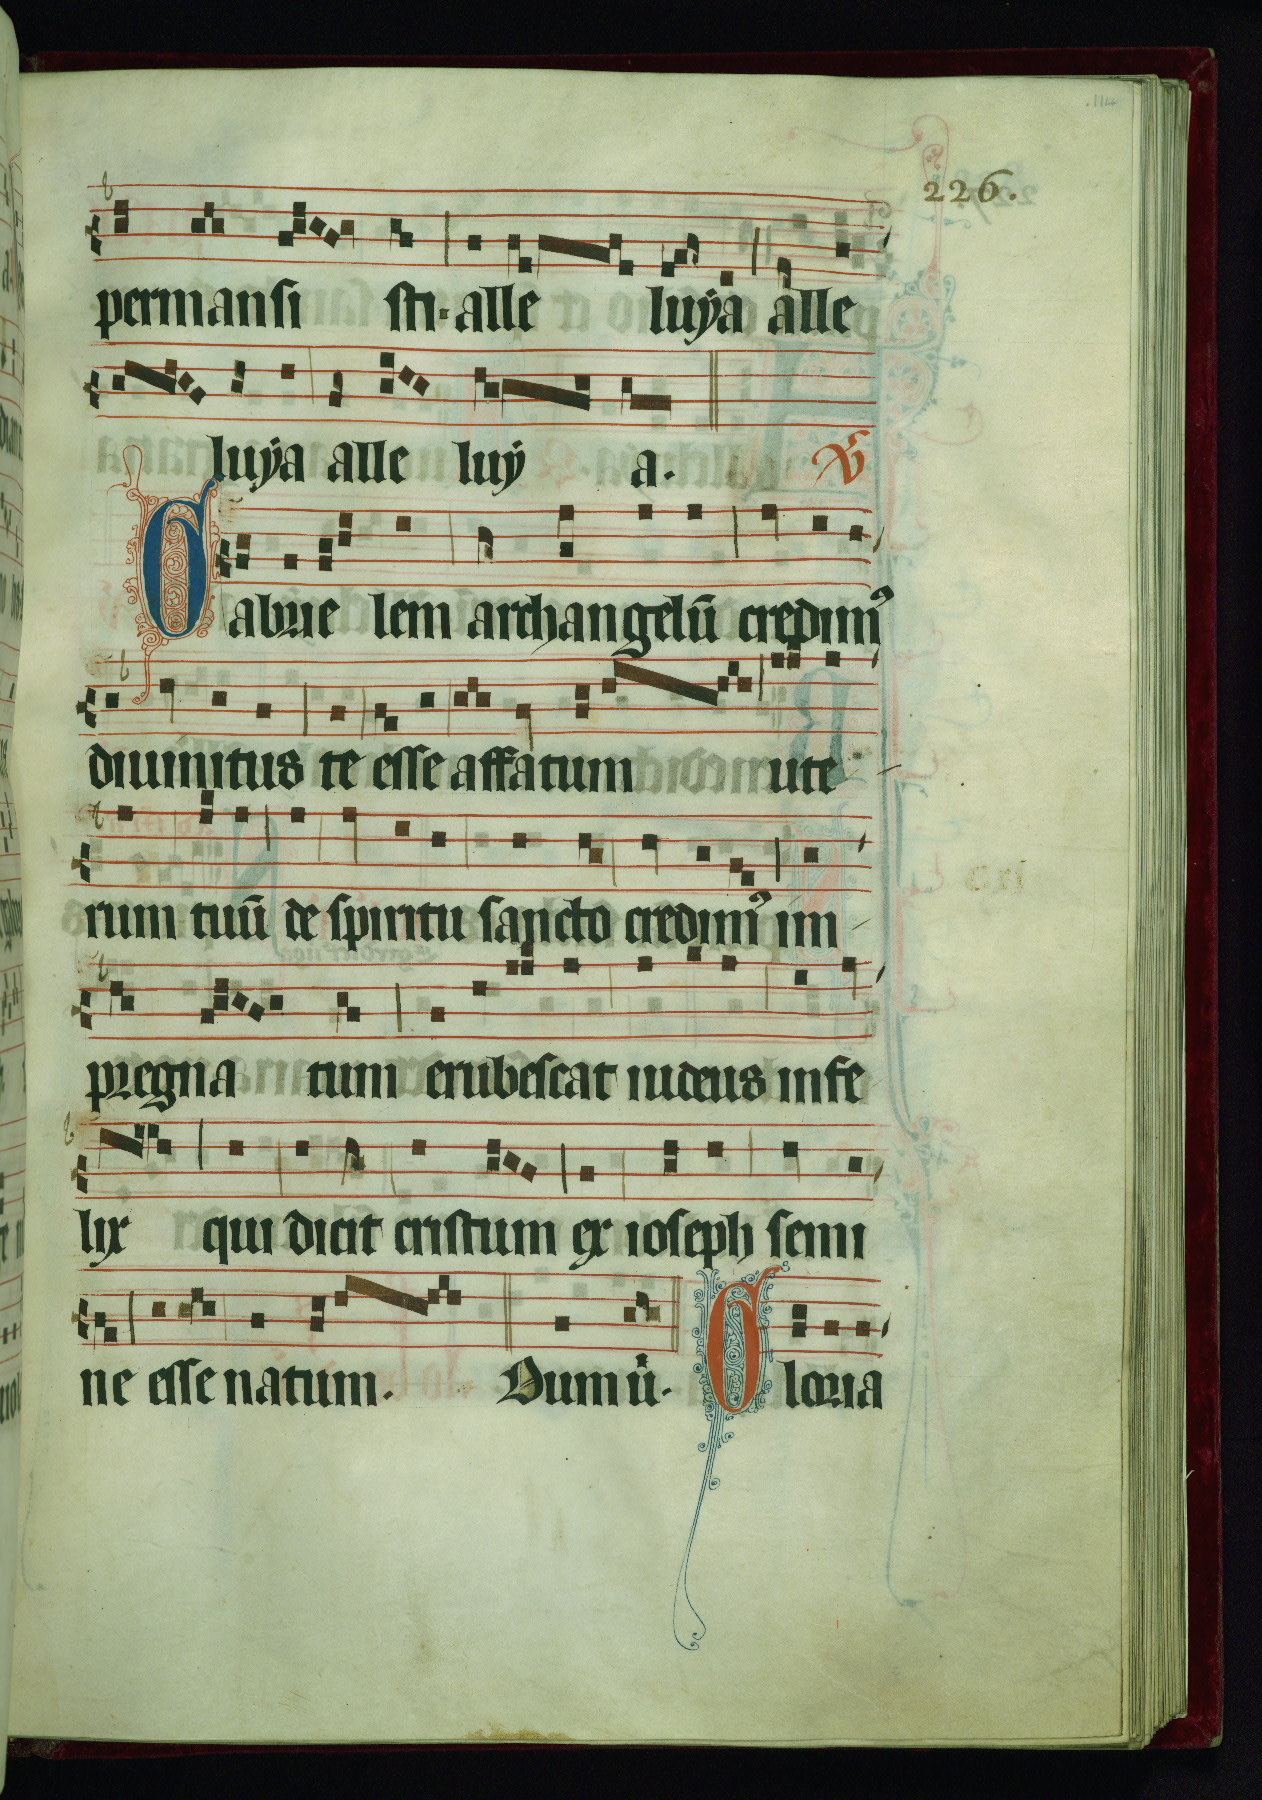 .114
226.
permansi sti·alle luÿa alle
luÿa alle luÿ a. V
Gabrie lem archangelū credimꝰ
diuinitus te esse affatum ute
rum tuū de spiritu sancto credimꝰ im
pregna tum erubescat iudeus infe
lix qui dicit cristum ex ioseph semi
ne esse natum. Dum ů. Gloria